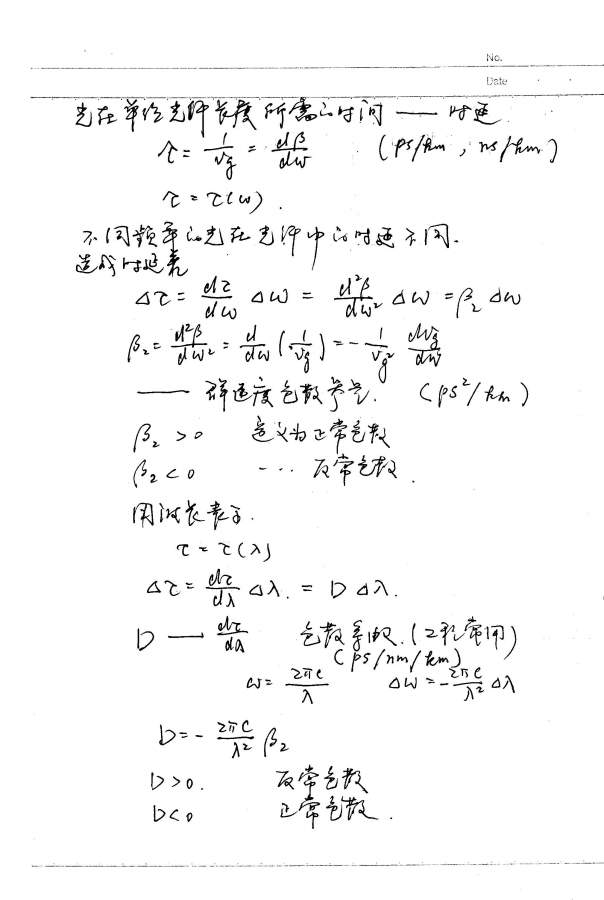 No.
Date
光在单位光纤长度所需的时间 —— 时延
τ = 1/vg = dβ/dω (ps/km, ns/km)
τ = τ(ω).
不同频率的光在光纤中的时延不同.
造成时延差
Δτ = dτ/dω Δω = d²β/dω² Δω = β₂ Δω
β₂ = d²β/dω² = d/dω (1/vg) = - 1/vg² dvg/dω
—— 群速度色散参量. (ps²/km)
β₂ > 0 定义为正常色散
β₂ < 0 ... 反常色散.
用波长表示.
τ = τ(λ)
Δτ = dτ/dλ Δλ. = D Δλ.
D — dτ/dλ 色散系数. (工程常用)
(ps/nm/km)
ω = 2πc/λ Δω = - 2πc/λ² Δλ
D = - 2πc/λ² β₂
D > 0. 反常色散
D < 0 正常色散.